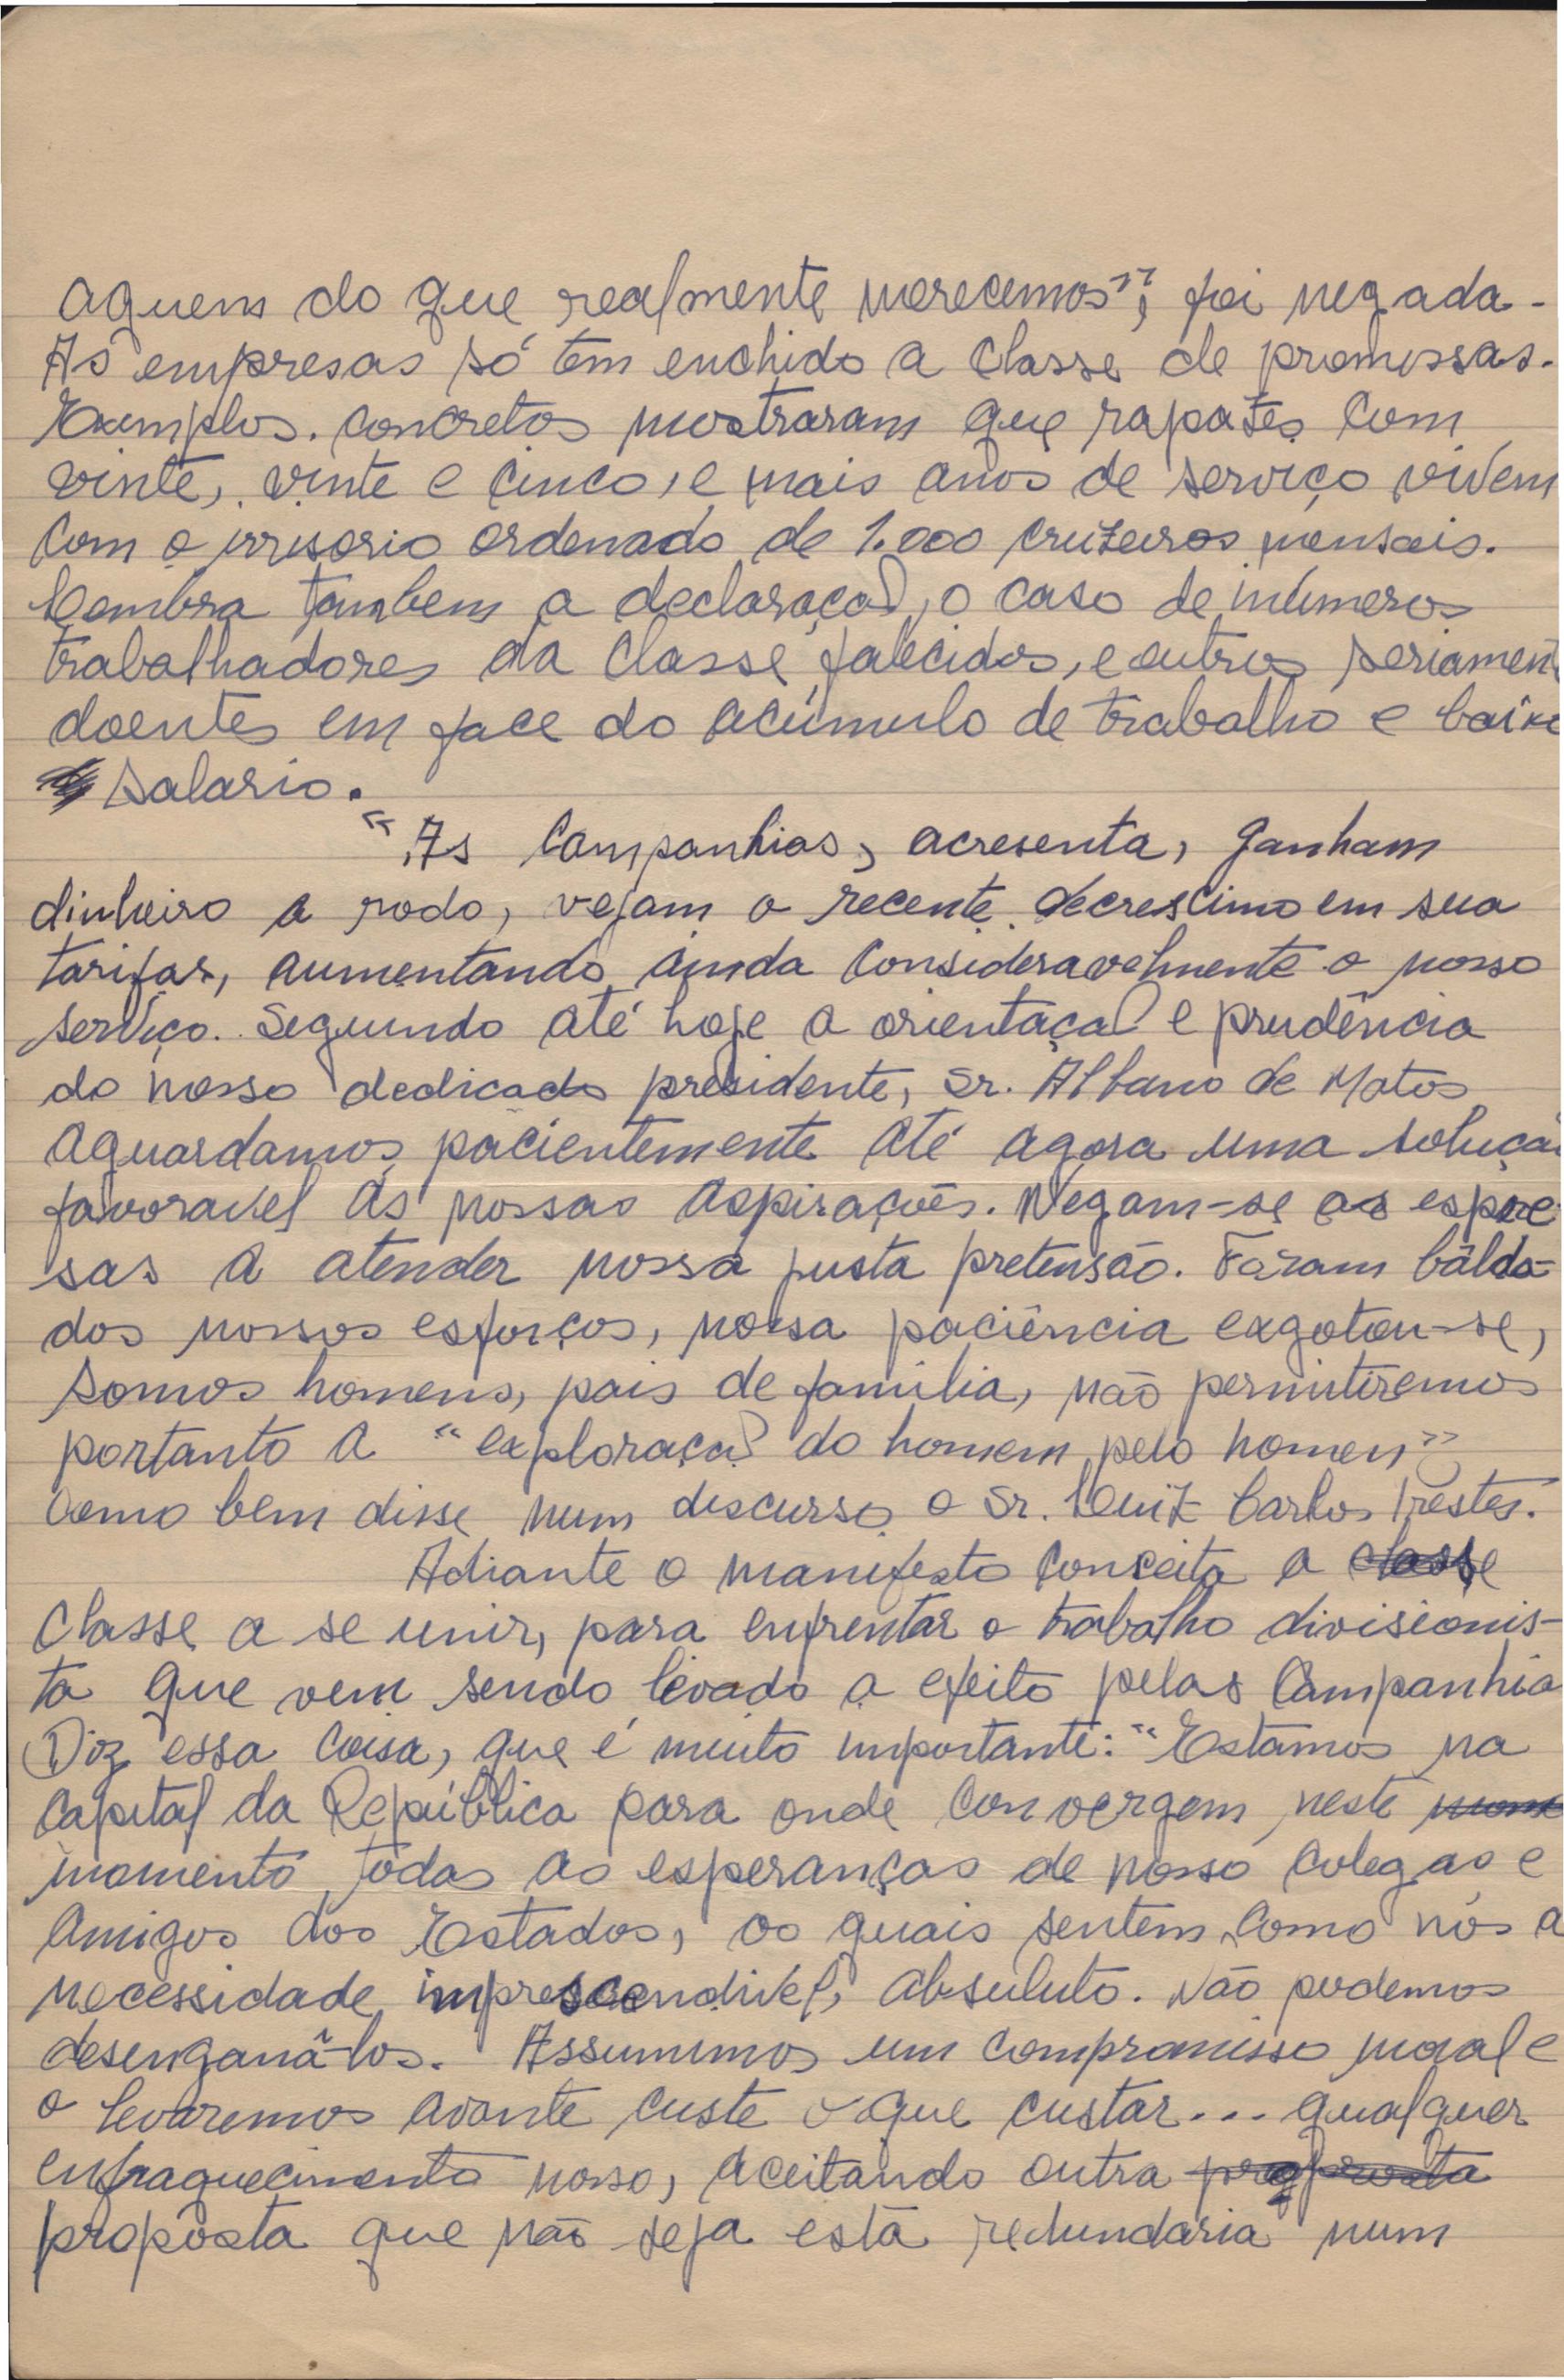 aquem do que realmente merecemos", foi negada -
As empresas só têm enchido a classe de promessas.
Exemplos. concretos mostraram que rapazes com
vinte, vinte e cinco, e mais anos de serviço vivem
com o irrisorio ordenado de 1.000 cruzeiros mensais.
Lembra tambem a declaração, o caso de inúmeros
trabalhadores da classe falecidos, e outros seriamen
doentes em face do acúmulo de trabalho e baixo
salario.
"As Companhias, acresenta, ganham
dinheiro a rodo, vejam o recente decrescimo em sua
tarifas, aumentando ainda consideravelmente o nosso
serviço. Seguundo até hoje a orientação e prudência
do nosso dedicado presidente, Sr. Albano de Matos
aguardamos pacientemente até agora uma soluçã
favoravel às nossas aspirações. Negam-se as espre
sas a atender nossa justa pretensão. Foram bálda-
dos nossos esforços, nossa paciência exgotou-se,
somos homens, pais de família, não permitiremos
portanto a "exploração do homem pelo homem"
como bem disse num discurso o Sr. Luiz Carlos Prestes.
Adiante o manifesto conceita a classe
classe a se unir, para enfrentar o trabalho divisionis-
ta que vem sendo levado a efeito pelas Companhia
Diz essa coisa, que é muito importante: "Estamos na
capital da República para onde convergem neste mome
momento todas as esperanças de nosso colegas e
amigos dos Estados, os quais sentem como nós a
necessidade imprescendivel, absuluto. Não podemos
desenganâ-los. Assumimos um compromisso moral e
o levaremos avante custe o que custar... qualquer
enfraquecimento nosso, aceitando outra proposta
propôsta que não seja está redundaria num